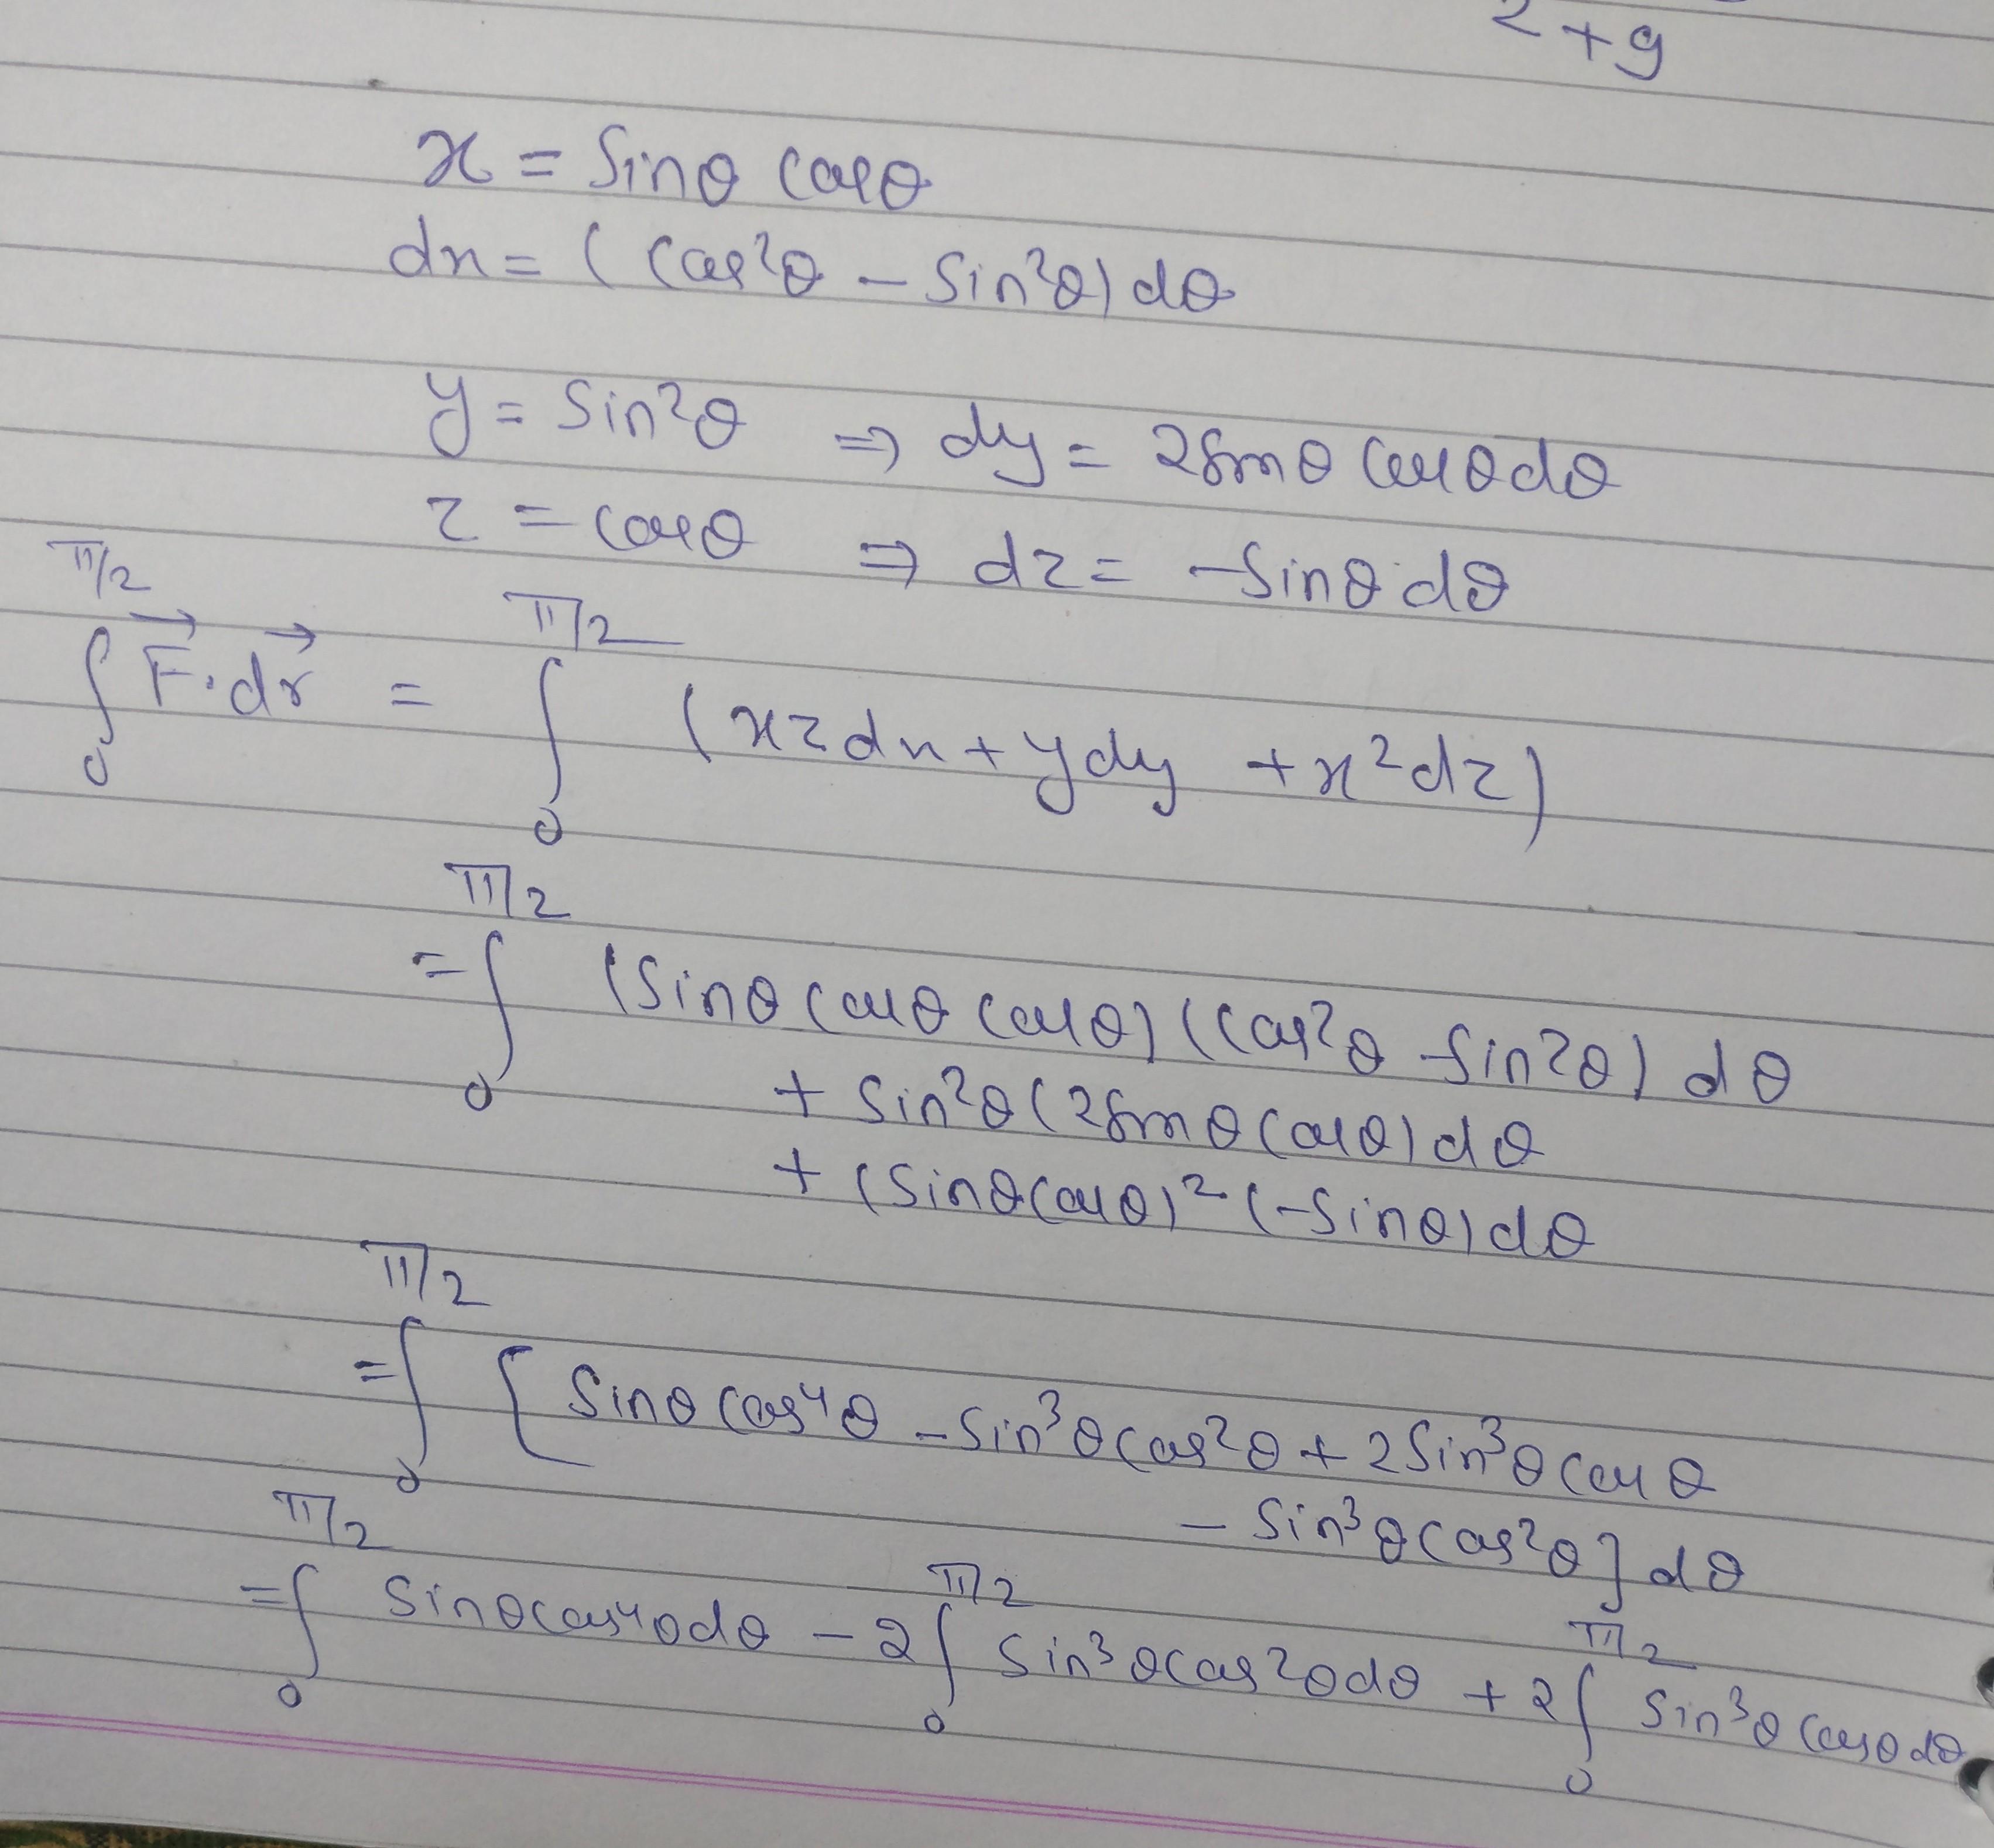 2+9
x = Sinθ cosθ
dx = (cos²θ - Sin²θ) dθ
y = Sin²θ ⇒ dy = 2Sinθ cosθ dθ
z = cosθ ⇒ dz = -Sinθ dθ
∫₀^{π/2} F⃗·dr⃗ = ∫₀^{π/2} (xzdx + ydy + x²dz)
= ∫₀^{π/2} (Sinθ cosθ cosθ) (cos²θ - Sin²θ) dθ
+ Sin²θ (2Sinθ cosθ) dθ
+ (Sinθ cosθ)² (-Sinθ) dθ
= ∫₀^{π/2} [Sinθ cos⁴θ - Sin³θ cos²θ + 2Sin³θ cosθ
- Sin³θ cos²θ] dθ
= ∫₀^{π/2} Sinθ cos⁴θ dθ - 2∫₀^{π/2} Sin³θ cos²θ dθ + 2∫₀^{π/2} Sin³θ cosθ dθ